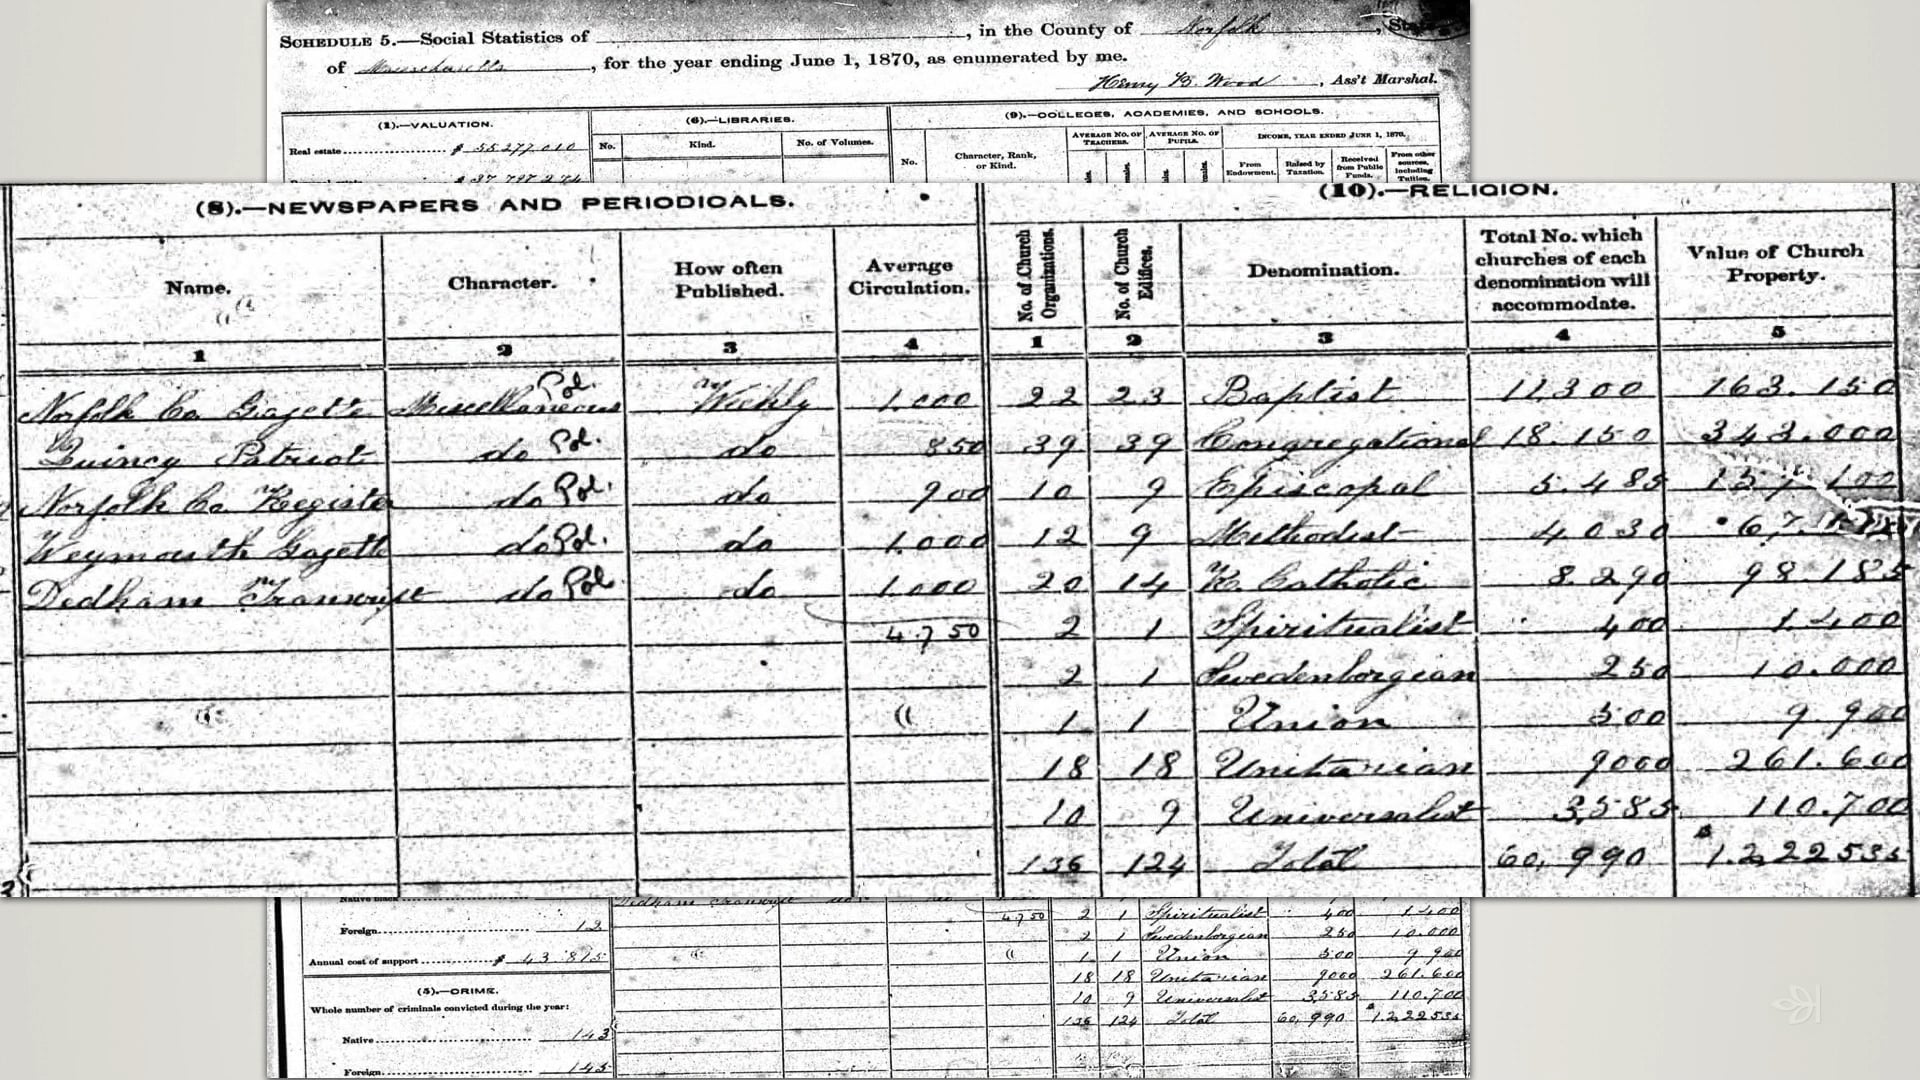 SCHEDULE 5.—Social Statistics of , in the County of Norfolk,
of Massachusetts, for the year ending June 1, 1870, as enumerated by me.
Henry B. Wood, Ass't Marshal.
(1).—VALUATION.
Real estate $ 55 277 010
(6).—LIBRARIES.
No. Kind. No. of Volumes.
(9).—COLLEGES, ACADEMIES, AND SCHOOLS.
No. Character, Rank, or Kind.
AVERAGE NO. OF TEACHERS. AVERAGE NO. OF PUPILS. INCOME, YEAR ENDED JUNE 1, 1870.
From Endowment. Raised by Taxation. Received from Public Funds. From other sources, including Tuition.
(8).—NEWSPAPERS AND PERIODICALS.
Name. Character. How often Published. Average Circulation.
1 2 3 4
Norfolk Co. Gazette Miscellaneous Pol. Weekly 1.000
Quincy Patriot do Pol. do 850
Norfolk Co. Register do Pol. do 900
Weymouth Gazette do Pol. do 1.000
Dedham Transcript do Pol. do 1.000
4.750
(10).—RELIGION.
No. of Church Organizations. No. of Church Edifices. Denomination. Total No. which churches of each denomination will accommodate. Value of Church Property.
1 2 3 4 5
22 23 Baptist 11.300 163.150
39 39 Congregational 18.150 343.000
10 9 Episcopal 5.485
12 9 Methodist 4 030
20 14 R. Catholic 8.290 98.185
2 1 Spiritualist 400 1.400
2 1 Swedenborgian 250 10.000
1 1 Union 500 9.900
18 18 Unitarian 9000 261.600
10 9 Universalist 3,585 110.700
136 124 Total 60,990 $ 1.222535
Native black
Foreign 12
Annual cost of support $ 43 875
(5).—CRIME.
Whole number of criminals convicted during the year:
Native 143
Foreign 145
Dedham Transcript do do
4.750
2 1 Spiritualist 400 1.400
2 1 Swedenborgian 250 10.000
1 1 Union 500 9 900
18 18 Unitarian 9000 261.600
10 9 Universalist 3,585 110.700
136 124 Total 60,990 $ 1.222535